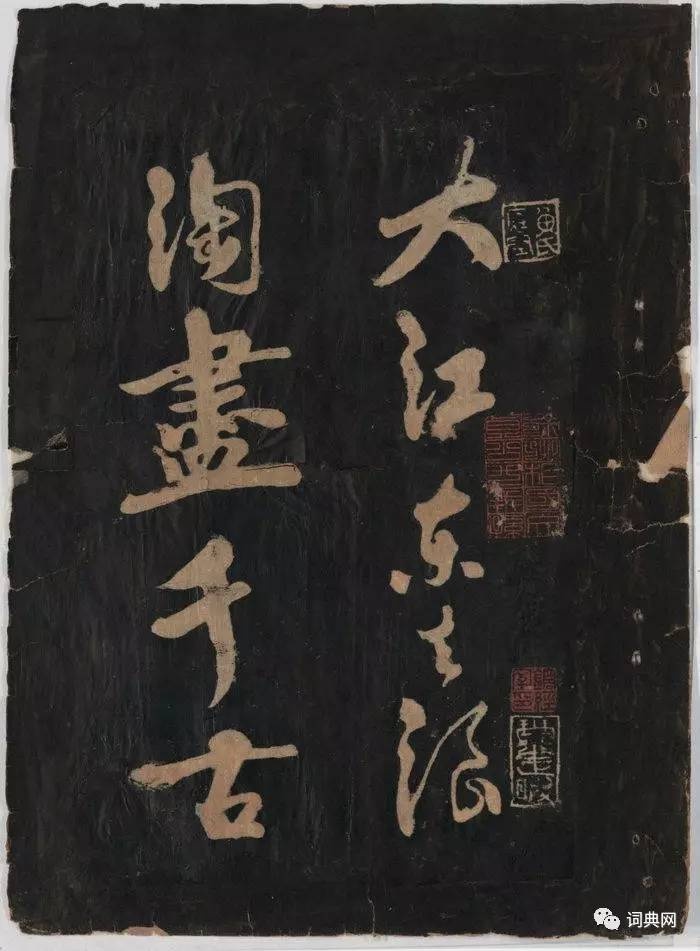 大江东去浪
淘盡千古
词典网